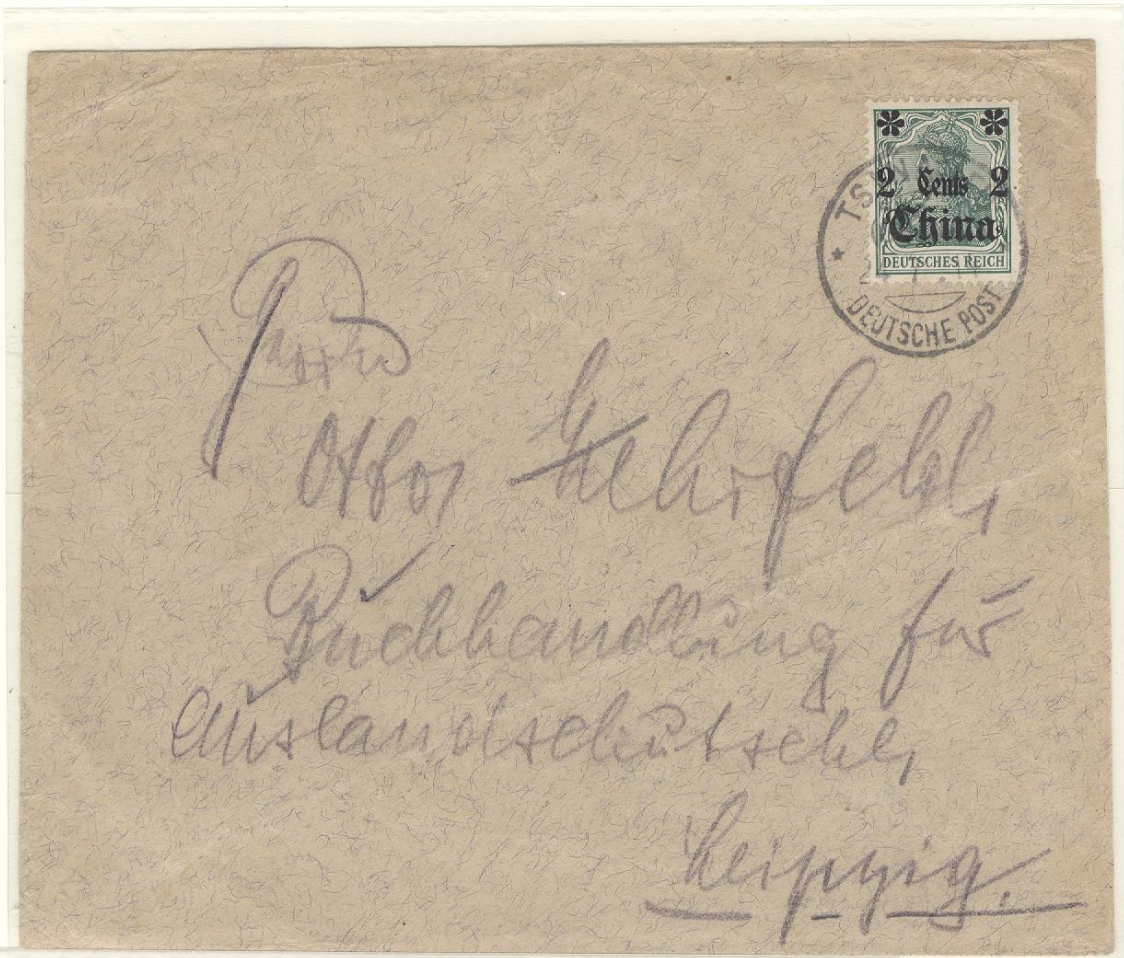 2 Cents 2
China
DEUTSCHES REICH
DEUTSCHE POST
Otto
Buchhandlung für
Auslanddeutsche,
Leipzig.